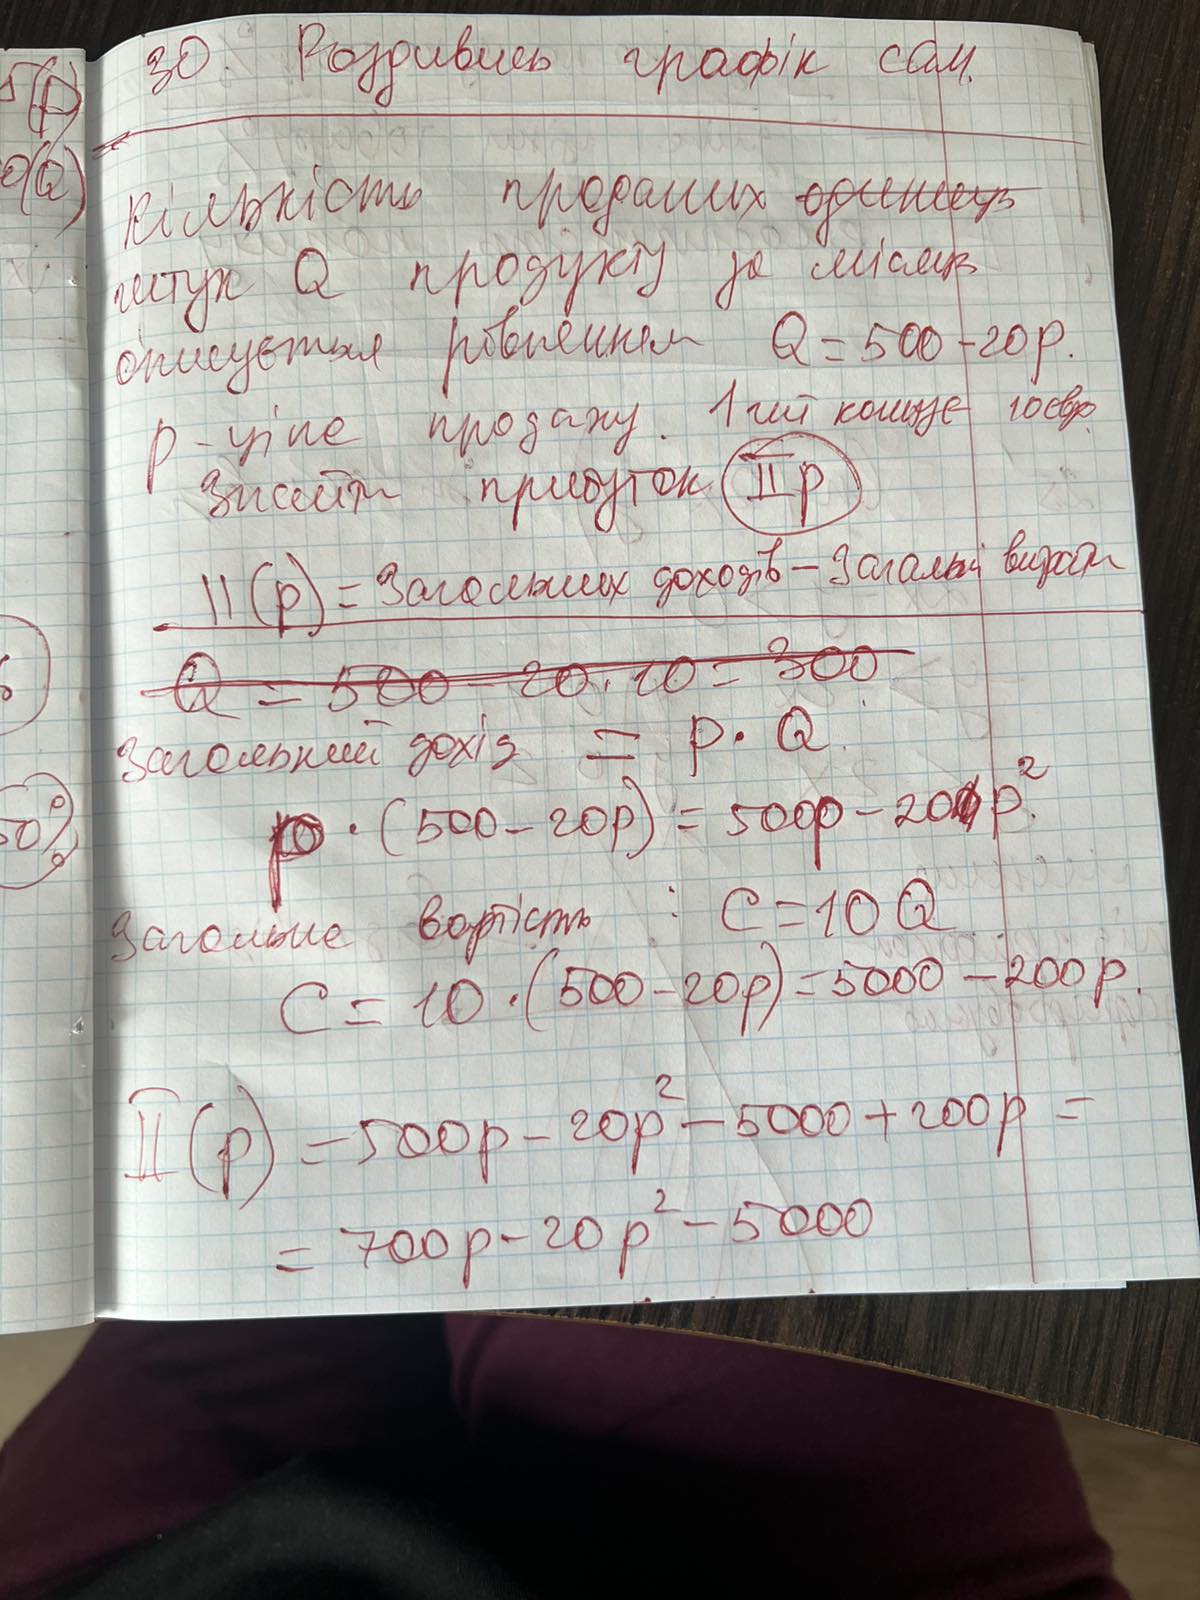 5(p)
30. Роздивись графік сам.
0(Q)
Кількість проданих одиниць
штук Q продукту за місяць
описується рівнянням Q=500-20p.
p-ціна продажу. 1 шт коштує 10євр.
Знайти прибуток IIp
II(p)=Загальних доходів-Загальні витрати
Q = 500-20·10=300
Загальний дохід = p·Q.
p·(500-20p)=500p-20p².
50%
Загальна вартість : C=10Q
C=10·(500-20p)=5000-200p.
II(p)=500p-20p²-5000+200p=
=700p-20p²-5000